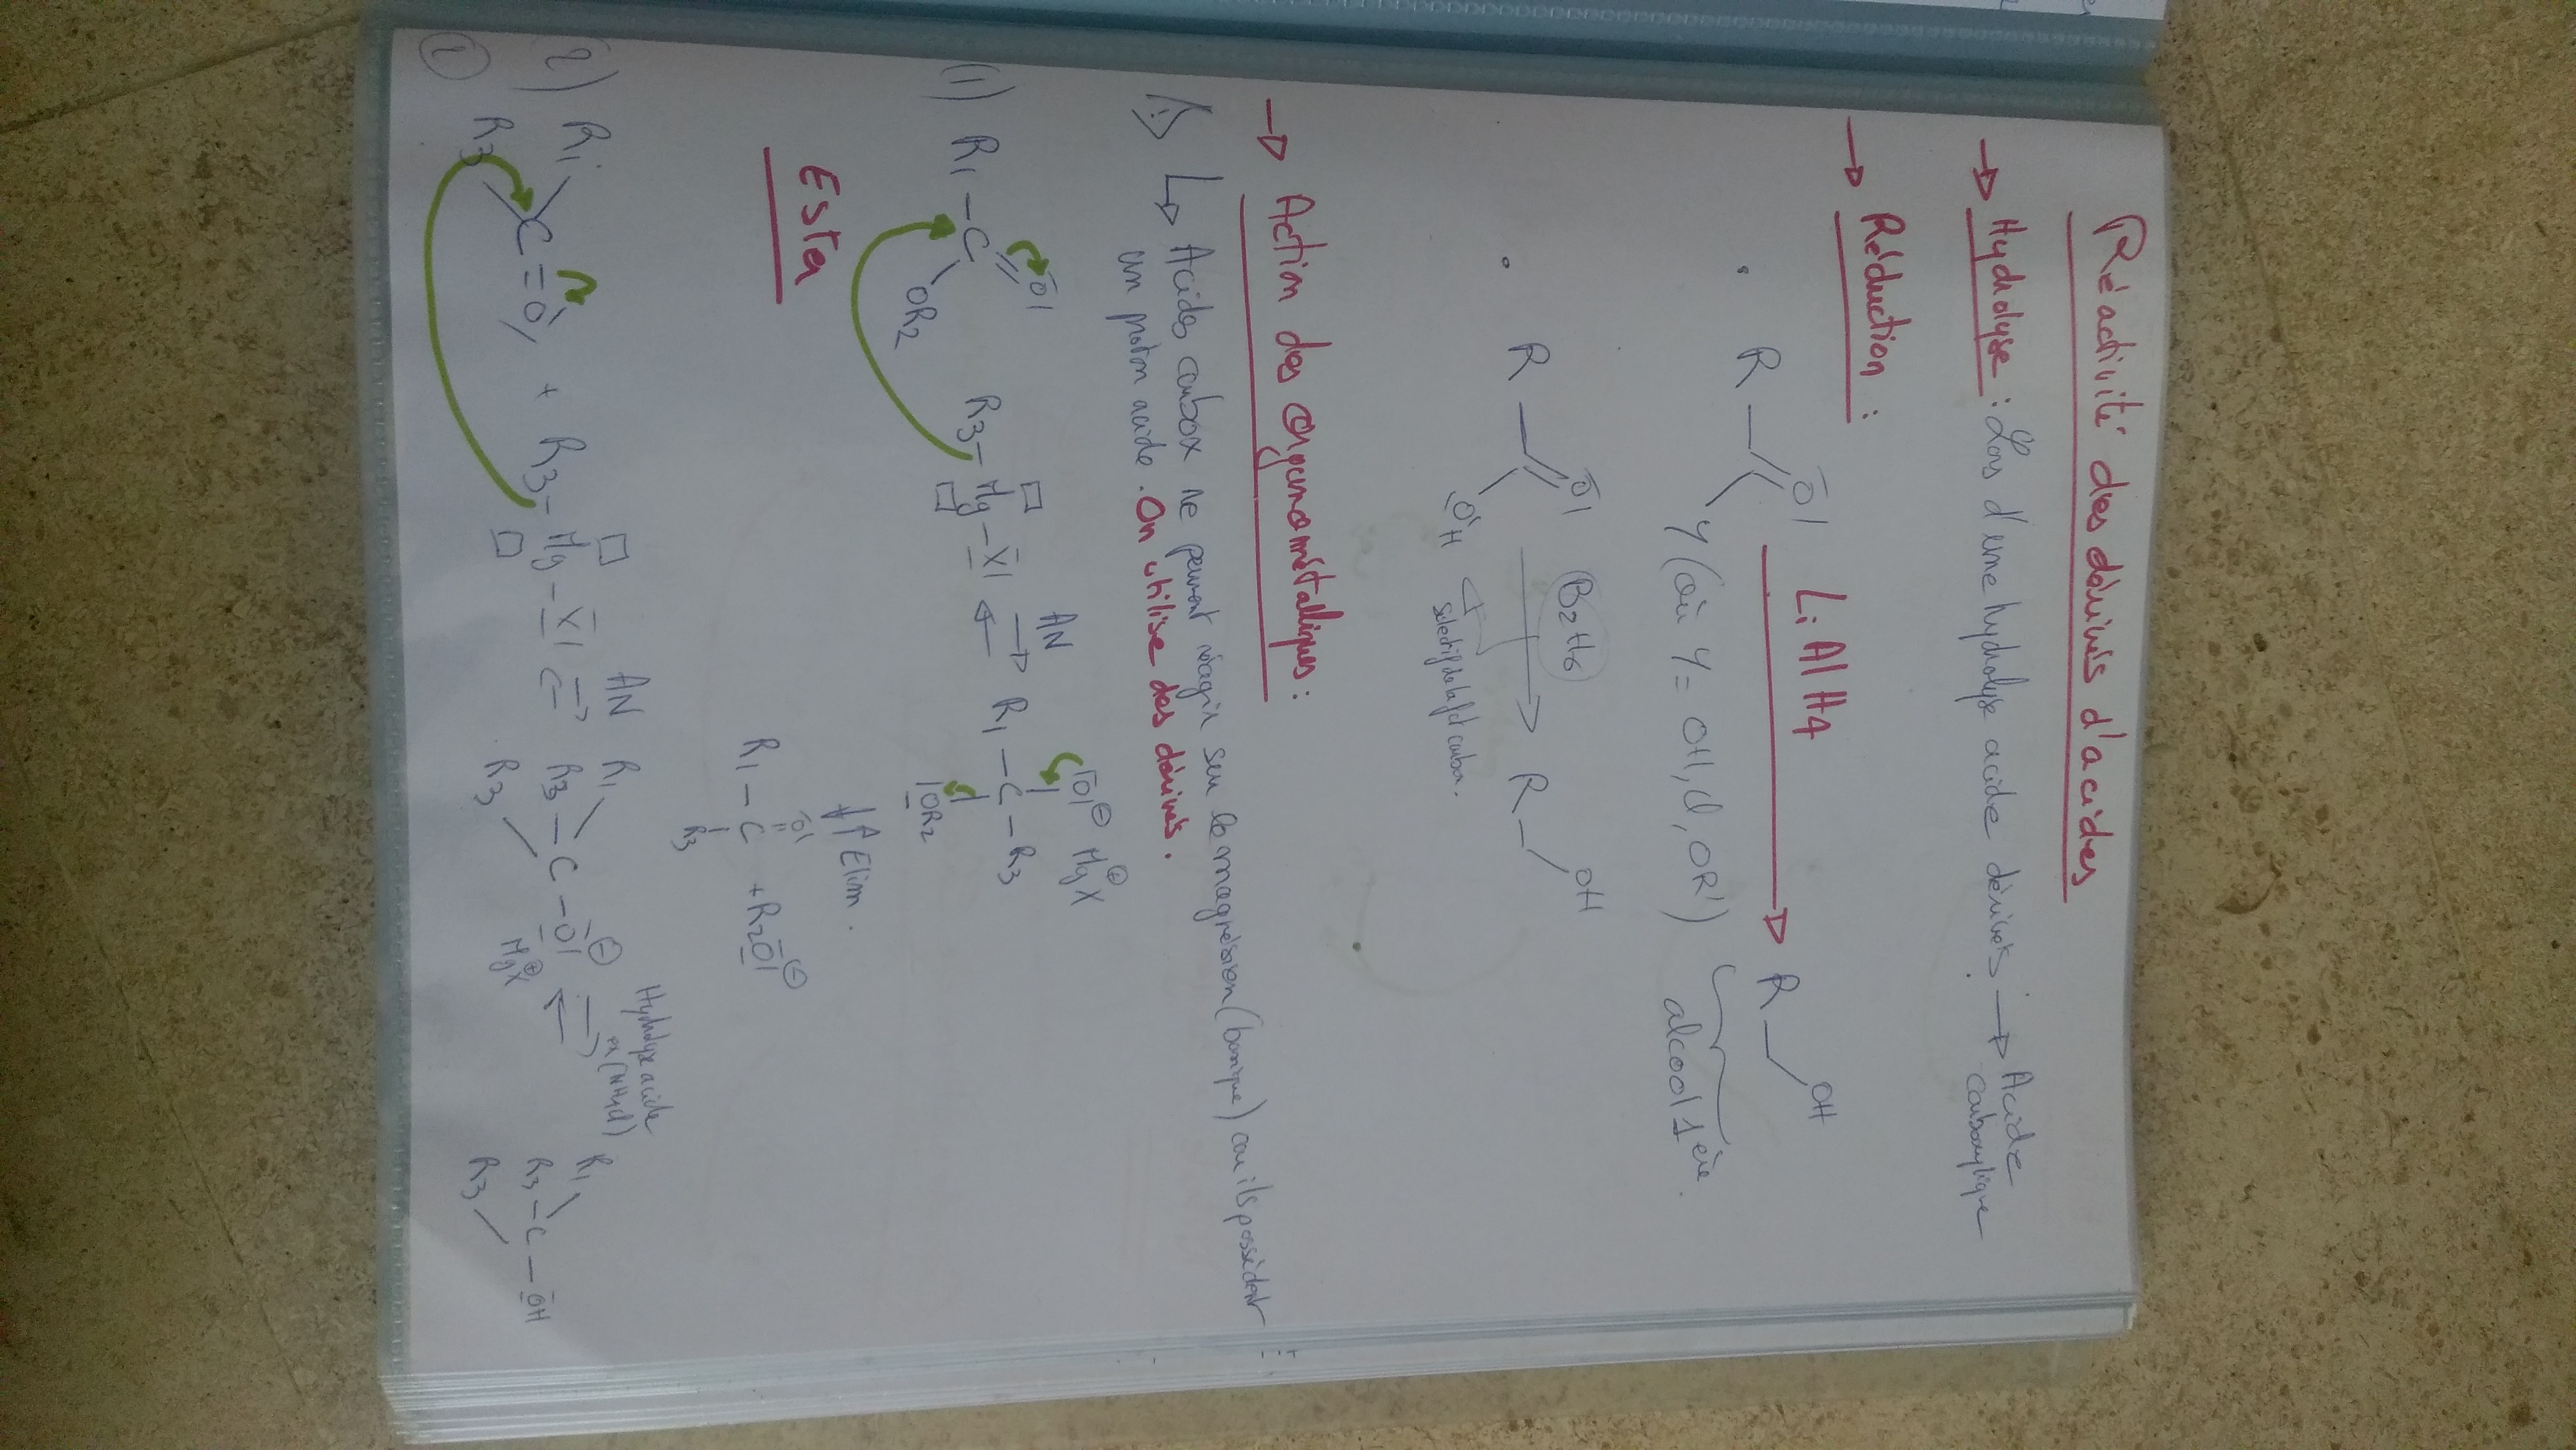 Réactivité des dérivés d'acides
→ Hydrolyse : Lors d'une hydrolyse acide dérivés → Acide carboxylique
→ Réduction :
R O Y (où Y = OH, Cl, OR') LiAlH4 R OH
alcool 1ère.
R O OH B2H6 R OH
→ Action des organométalliques :
⚠ ↳ Acides carbox ne peuvent réagir sur le magnésien (basique) car ils possèdent
un proton acide. On utilise des dérivés.
(1) R1-C O OR2 R3-Mg-X AN R1-C-R3 O⊖ MgX⊕ OR2
Elim.
Ester R1-C O R3 + R2O⊖
2) R1 R3 C=O + R3-Mg-X AN R1 R3-C-O⊖ R3 MgX⊕ Hydrolyse acide (NH4Cl) R1 R3-C-OH R3